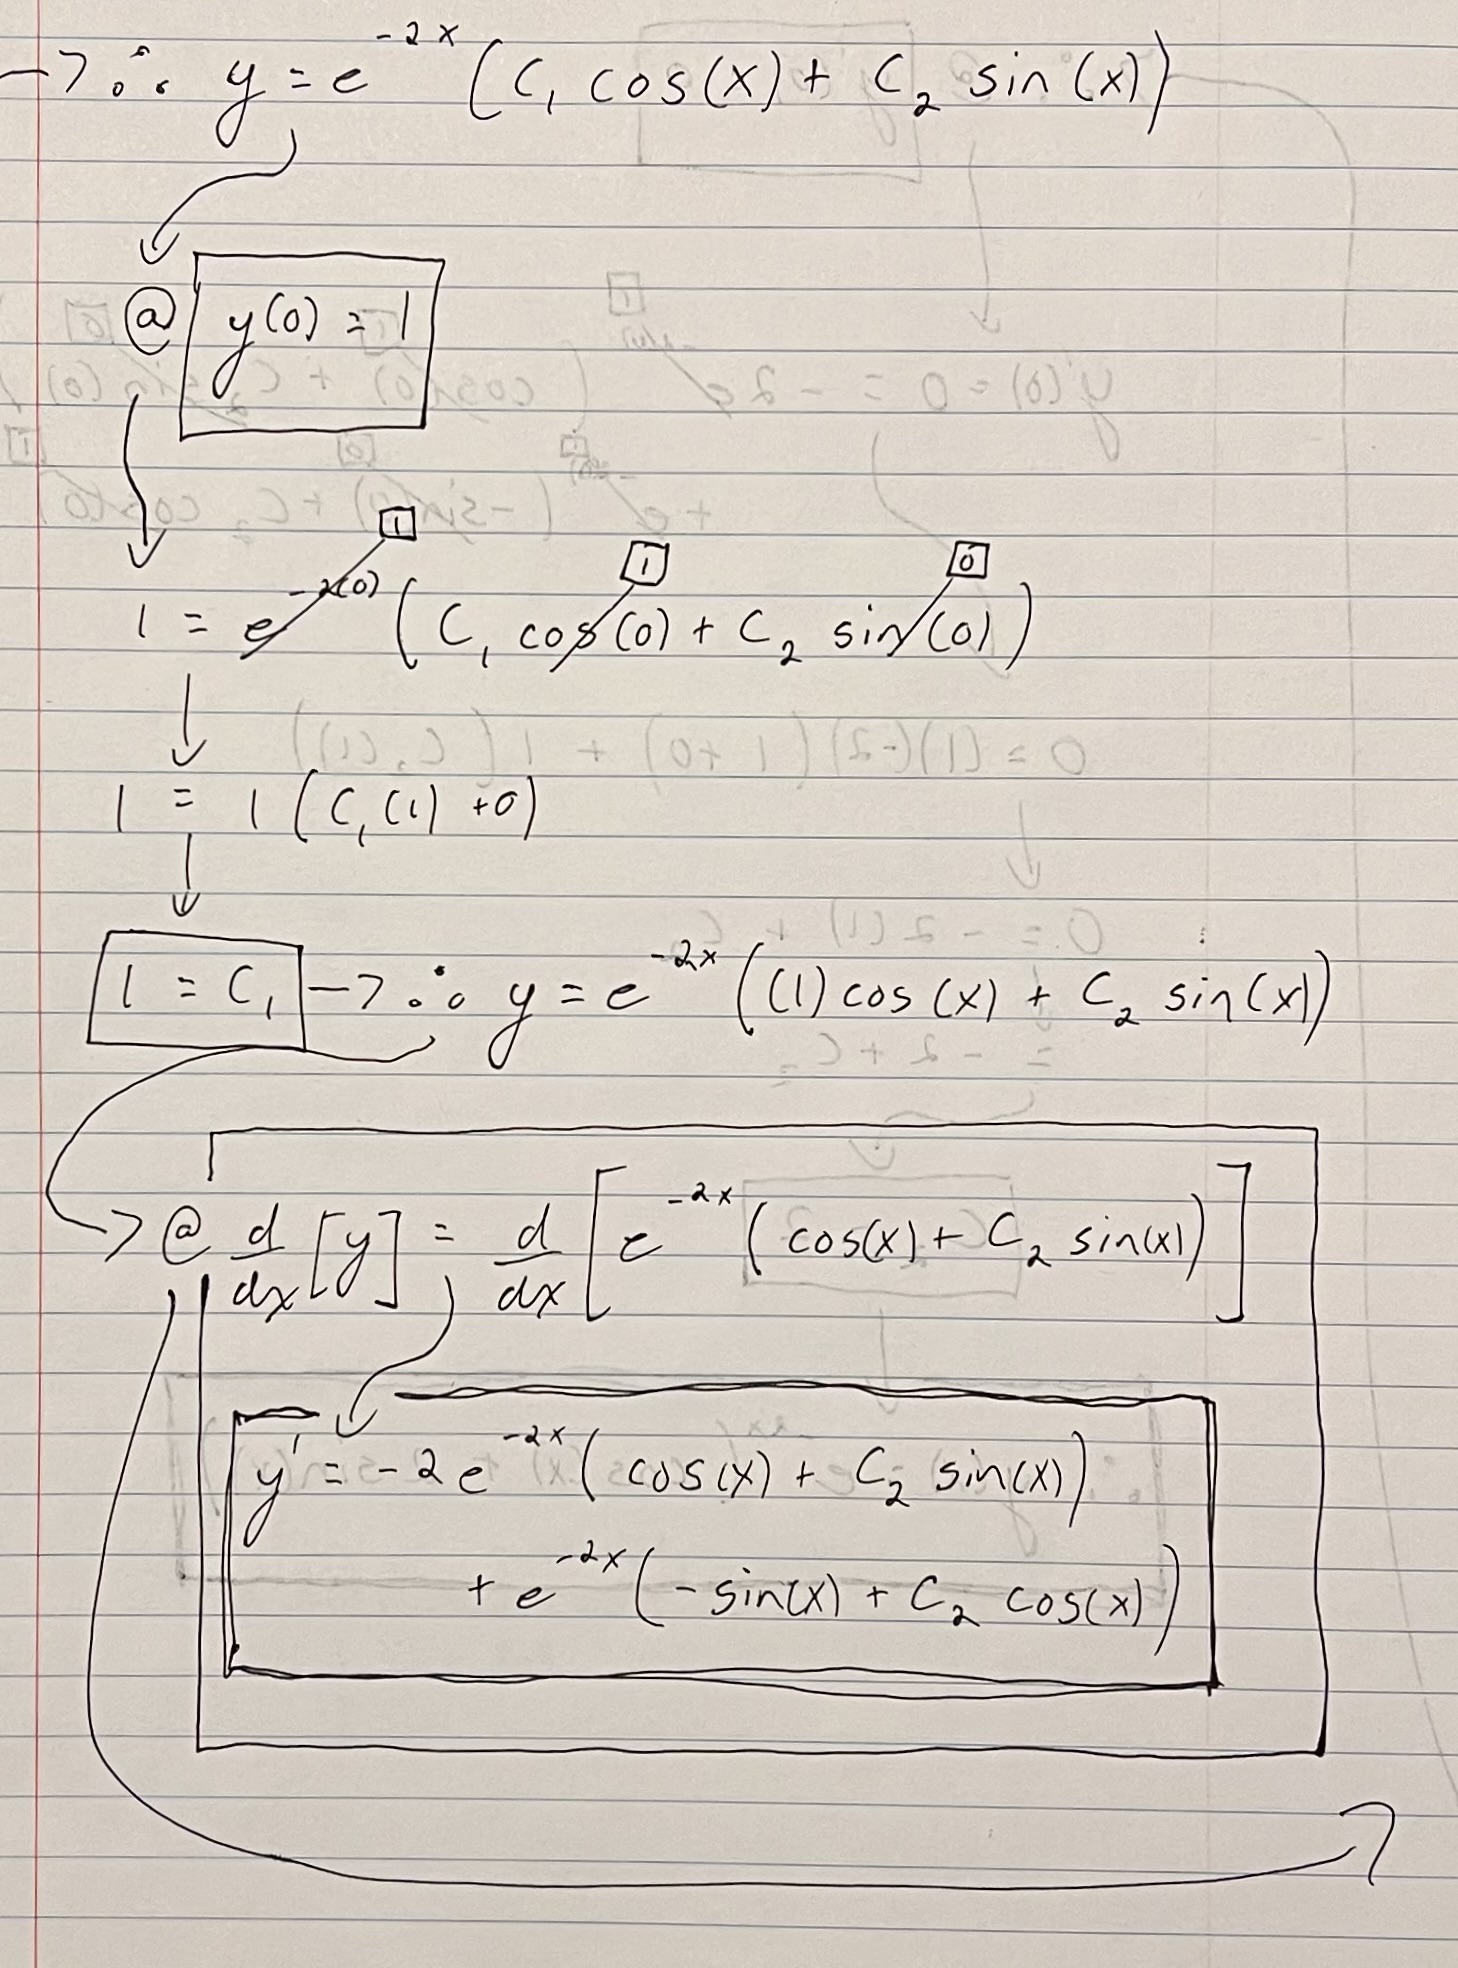 → ∴ y = e^{-2x} (C₁ cos(x) + C₂ sin(x))
@ y(0) = 1
1 1 0
1 = e^{-2(0)} (C₁ cos(0) + C₂ sin(0))
1 = 1 (C₁(1) + 0)
1 = C₁ → ∴ y = e^{-2x} ((1) cos(x) + C₂ sin(x))
→ @ d/dx [y] = d/dx [e^{-2x} (cos(x) + C₂ sin(x))]
y' = -2e^{-2x} (cos(x) + C₂ sin(x))
+ e^{-2x} (-sin(x) + C₂ cos(x))